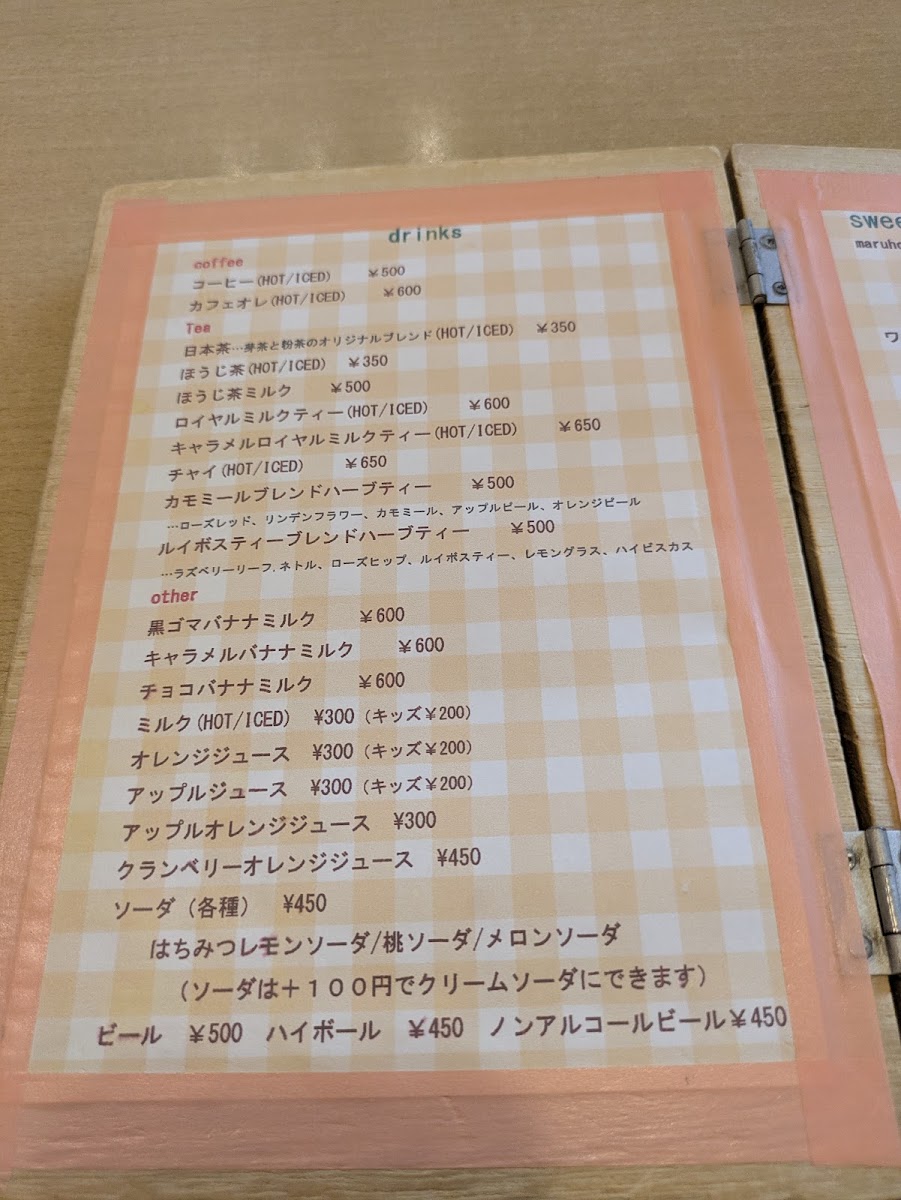 drinks
coffee
コーヒー(HOT/ICED) ￥500
カフェオレ(HOT/ICED) ￥600
Tea
日本茶…芽茶と粉茶のオリジナルブレンド(HOT/ICED) ￥350
ほうじ茶(HOT/ICED) ￥350
ほうじ茶ミルク ￥500
ロイヤルミルクティー(HOT/ICED) ￥600
キャラメルロイヤルミルクティー(HOT/ICED) ￥650
チャイ(HOT/ICED) ￥650
カモミールブレンドハーブティー ￥500
…ローズレッド、リンデンフラワー、カモミール、アップルピール、オレンジピール
ルイボスティーブレンドハーブティー ￥500
…ラズベリーリーフ,ネトル、ローズヒップ、ルイボスティー、レモングラス、ハイビスカス
other
黒ゴマバナナミルク ￥600
キャラメルバナナミルク ￥600
チョコバナナミルク ￥600
ミルク(HOT/ICED) ¥300（キッズ￥200）
オレンジジュース ¥300（キッズ￥200）
アップルジュース ¥300（キッズ￥200）
アップルオレンジジュース ¥300
クランベリーオレンジジュース ¥450
ソーダ（各種） ¥450
はちみつレモンソーダ/桃ソーダ/メロンソーダ
（ソーダは＋１００円でクリームソーダにできます）
ビール ￥500 ハイボール ￥450 ノンアルコールビール￥450
swee
maruho
ワ